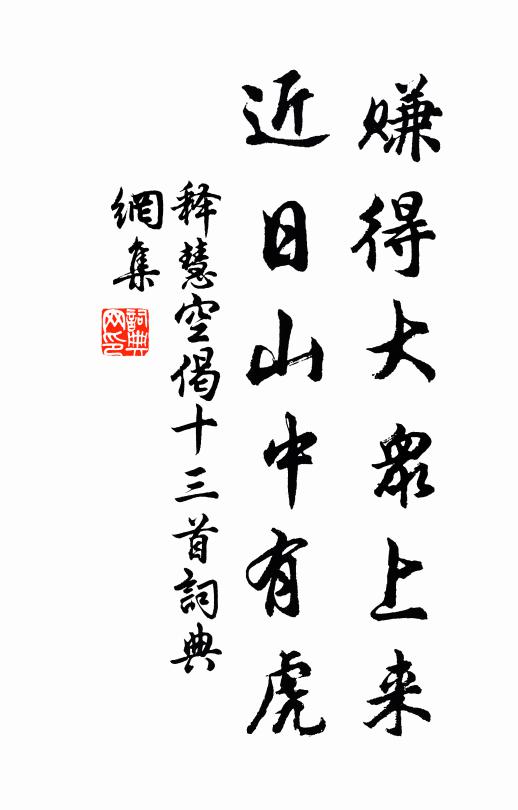 赚得大眾上来
近日山中有虎
释慧空偈十三首詞典
網集
詞典
网印